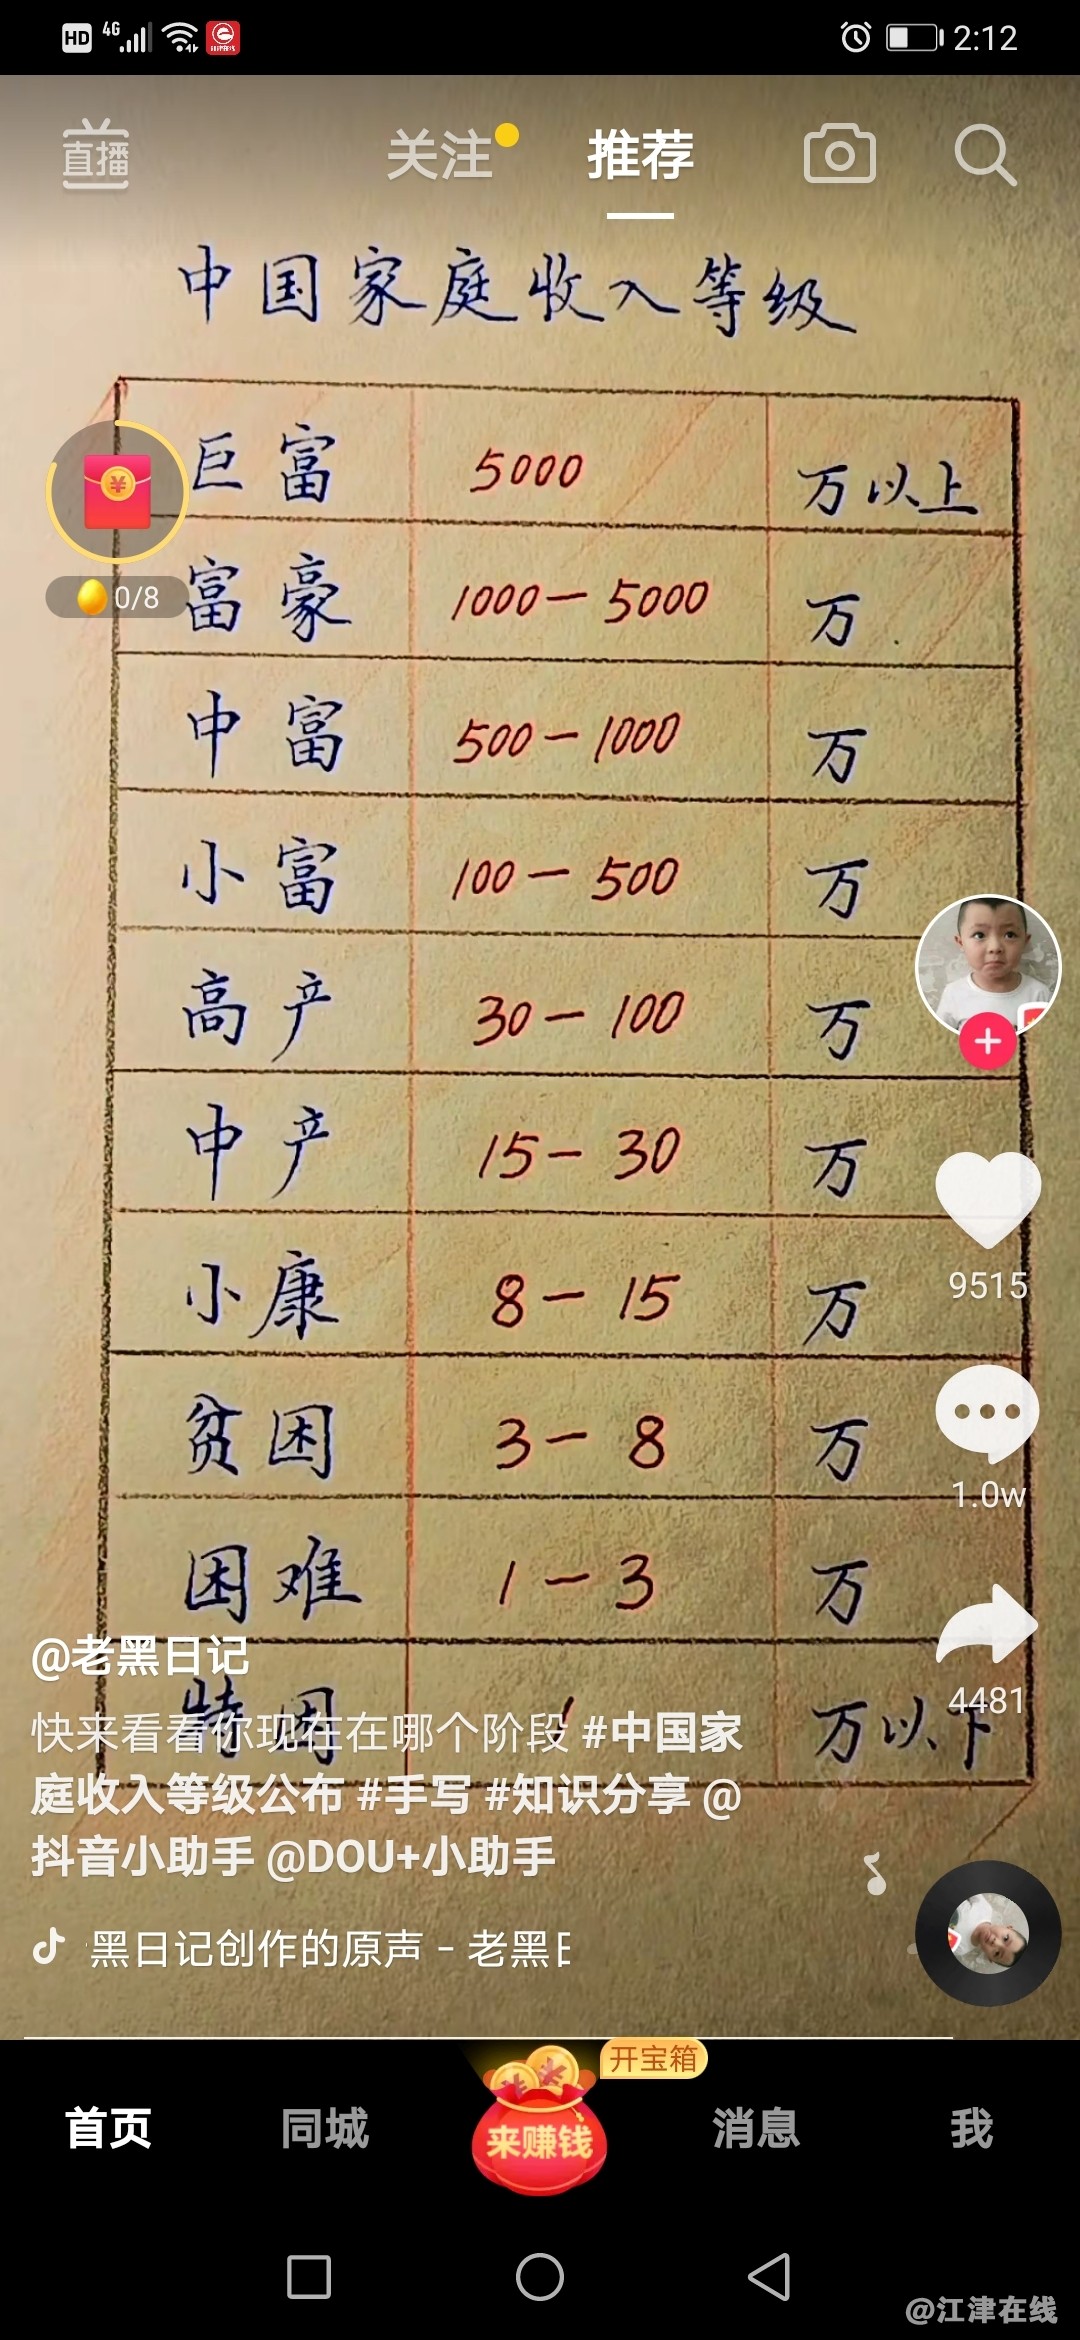 HD 4G 2:12
直播 关注 推荐
中国家庭收入等级
巨富 5000 万以上
0/8
富豪 1000－5000 万
中富 500－1000 万
小富 100－500 万
高产 30－100 万
中产 15－30 万
小康 8－15 万
9515
贫困 3－8 万
1.0w
困难 1－3 万
@老黑日记
4481
特困 1 万以下
快来看看你现在在哪个阶段 #中国家
庭收入等级公布 #手写 #知识分享 @
抖音小助手 @DOU+小助手
黑日记创作的原声 - 老黑日
开宝箱
首页 同城 来赚钱 消息 我
@江津在线